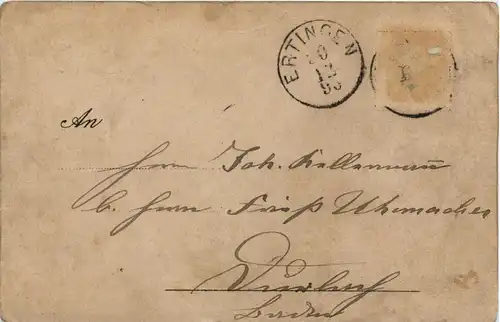 ERTINGEN
An
Herrn Joh. Kellermann
b. Herrn Frieß Uhrmacher
Durlach
Baden